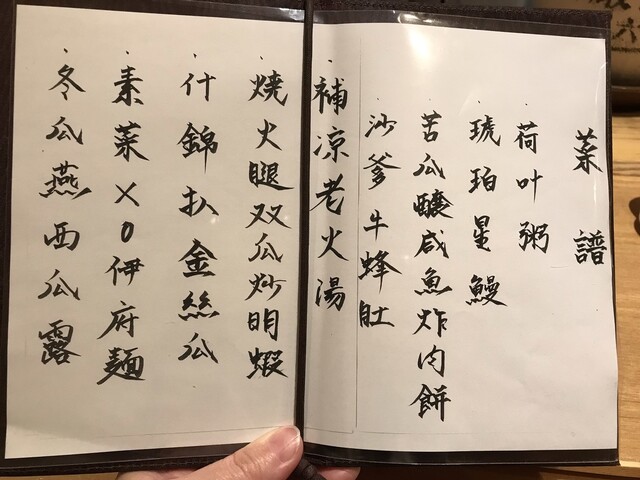 菜譜
荷叶粥
琥珀星鰻
苦瓜釀咸魚炸肉餅
沙爹牛蜂肚
補凉老火湯
燒火腿双瓜炒明蝦
什錦扒金絲瓜
素菜XO伊府麵
冬瓜燕西瓜露